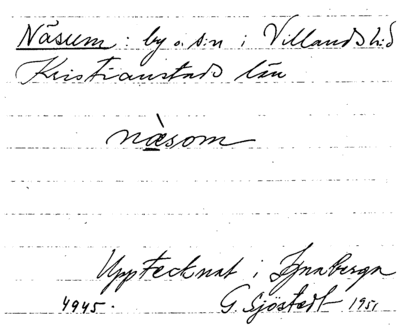 Näsum: by o. s:n i Villands h:d
Kristianstads län
näsom
Upptecknat i
4945. G. Sjöstedt 1951